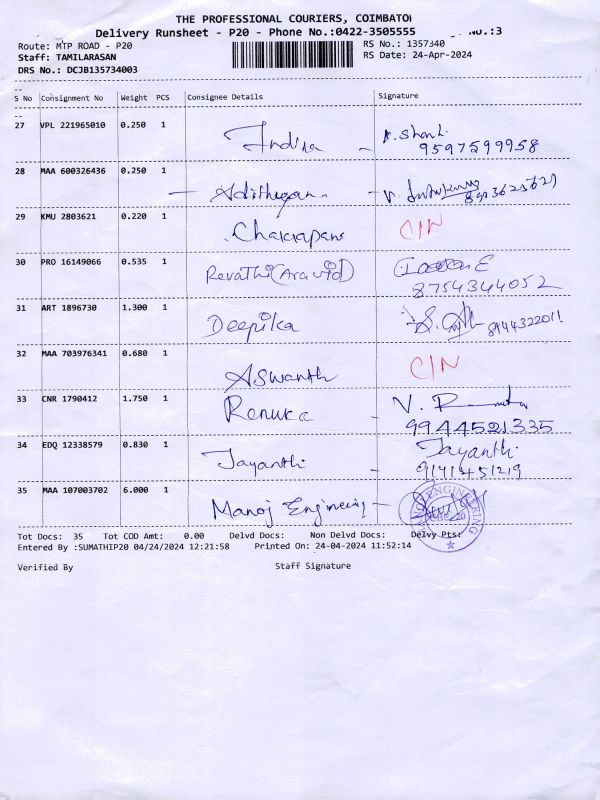 THE PROFESSIONAL COURIERS, COIMBATO
Delivery Runsheet - P20 - Phone No.:0422-3505555 NO.:3
Route: MTP ROAD - P20 RS No.: 1357340
Staff: TAMILARASAN RS Date: 24-Apr-2024
DRS No.: DCJB135734003
S No Consignment No Weight PCS Consignee Details Signature
27 VPL 221965010 0.250 1 Indira - 9597599958
28 MAA 600326436 0.250 1 - -
29 KMU 2803621 0.220 1 Chakrapani C/N
30 PRO 16149066 0.535 1 Revathi(Aravid)
8754344052
31 ART 1896730 1.300 1 Deepika 8144322011
32 MAA 703976341 0.680 1 Aswanth C/N
33 CNR 1790412 1.750 1 Renuka - V.
9944521335
34 EDQ 12338579 0.830 1 Jayanthi - Jayanthi
35 MAA 107003702 6.000 1 Manoj Engineering -
Tot Docs: 35 Tot COD Amt: 0.00 Delvd Docs: Non Delvd Docs: Delvy Pts:
Entered By :SUMATHIP20 04/24/2024 12:21:58 Printed On: 24-04-2024 11:52:14
Verified By Staff Signature